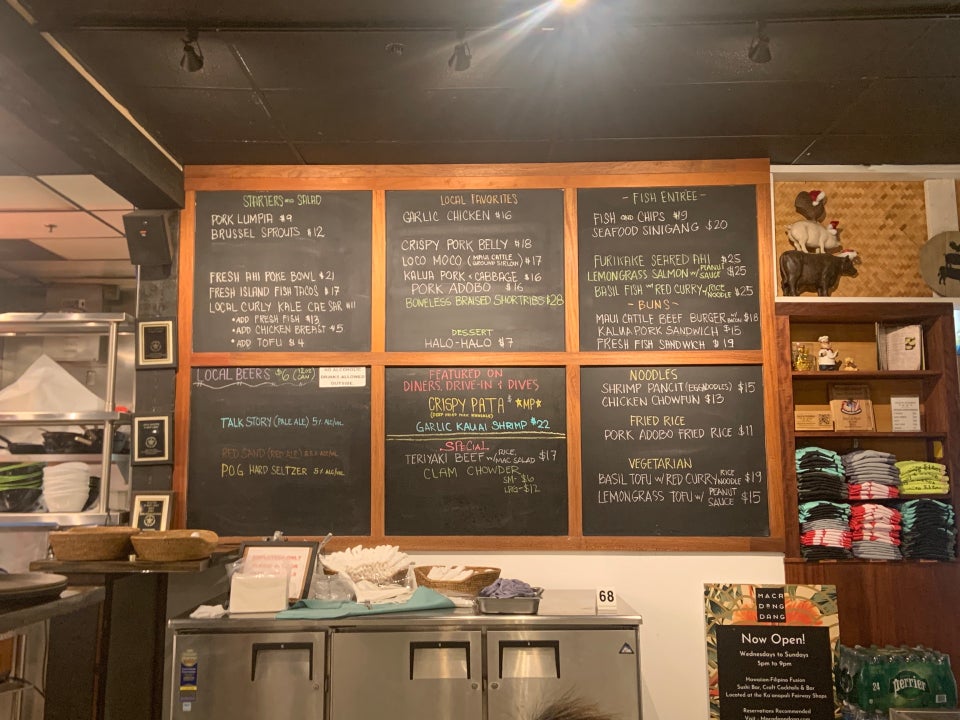 STARTERS AND SALAD
PORK LUMPIA $9
BRUSSEL SPROUTS $12
FRESH AHI POKE BOWL $21
FRESH ISLAND FISH TACOS $17
LOCAL CURLY KALE CAESAR $11
*ADD FRESH FISH $13
*ADD CHICKEN BREAST $5
*ADD TOFU $4
LOCAL FAVORITES
GARLIC CHICKEN $16
CRISPY PORK BELLY $18
LOCO MOCO (MAUI CATTLE GROUND SIRLOIN) $17
KALUA PORK & CABBAGE $16
PORK ADOBO $16
BONELESS BRAISED SHORTRIBS $28
DESSERT
HALO-HALO $7
- FISH ENTREE -
FISH AND CHIPS $19
SEAFOOD SINIGANG $20
FURIKAKE SEARED AHI $25
LEMONGRASS SALMON W/ PEANUT SAUCE $25
BASIL FISH W/ RED CURRY W/ RICE NOODLE $25
- BUNS -
MAUI CATTLE BEEF BURGER W/ BACON $18
KALUA PORK SANDWICH $15
FRESH FISH SANDWICH $19
LOCAL BEERS $6 (12OZ CAN)
NO ALCOHOLIC
DRINKS ALLOWED
OUTSIDE
TALK STORY (PALE ALE) 5% ALC/VOL
RED SAND (RED ALE)
POG HARD SELTZER 5% ALC/VOL
FEATURED ON
DINERS, DRIVE-IN & DIVES
CRISPY PATA $ *MP*
GARLIC KAUAI SHRIMP $22
SPECIAL
TERIYAKI BEEF W/ RICE, MAC SALAD $17
CLAM CHOWDER
SM- $6
LRG- $12
NOODLES
SHRIMP PANCIT (EGG NOODLES) $15
CHICKEN CHOWFUN $13
FRIED RICE
PORK ADOBO FRIED RICE $11
VEGETARIAN
BASIL TOFU W/ RED CURRY RICE NOODLE $19
LEMONGRASS TOFU W/ PEANUT SAUCE $15
68
EMPLOYEES ONLY
MACA
DANG
DANG
Now Open!
Wednesdays to Sundays
5pm to 9pm
Hawaiian Filipino Fusion
Sushi Bar, Craft Cocktails & Bar
Located at the Ka'anapali Fairway Shops
Reservations Recommended
Visit - Macadangdang.com
24
perrier